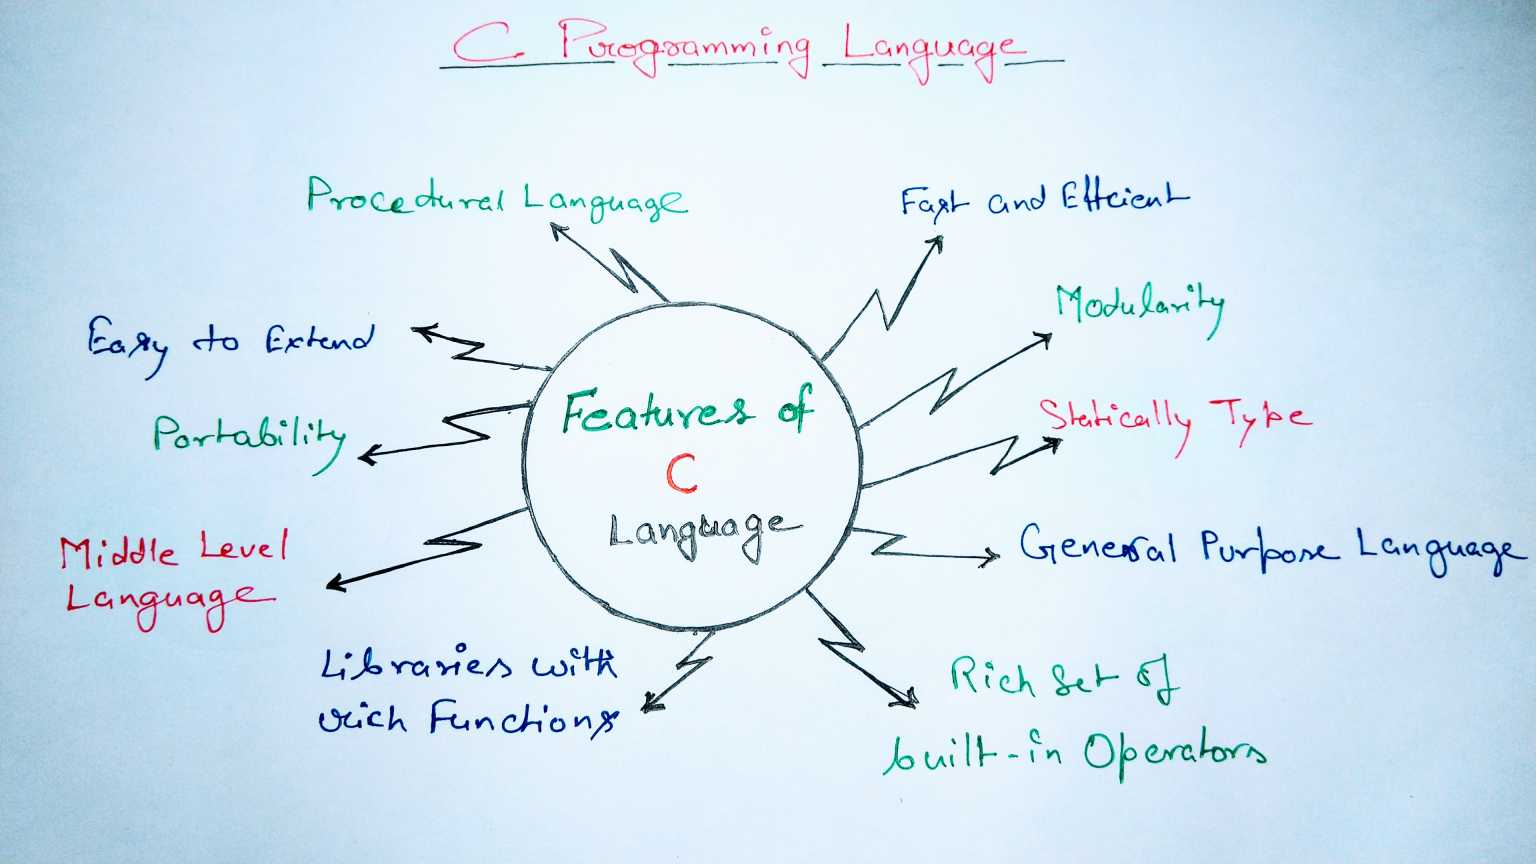 C Programming Language
Procedural Language
Fast and Efficient
Modularity
Easy to Extend
Statically Type
Portability
Features of
C
Language
General Purpose Language
Middle Level
Language
Libraries with
rich Functions
Rich Set of
built-in Operators